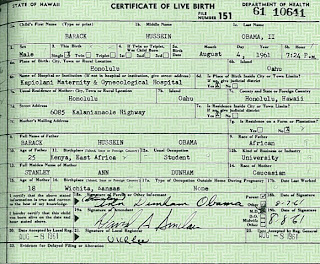 STATE OF HAWAII CERTIFICATE OF LIVE BIRTH DEPARTMENT OF HEALTH
FILE NUMBER 151 61 10641
1a. Child's First Name (Type or print) 1b. Middle Name 1c. Last Name
BARACK HUSSEIN OBAMA, II
2. Sex 3. This Birth 4. If Twin or Triplet, Was Child Born 5a. Birth Date Month Day Year 5b. Hour
Male Single Twin Triplet 1st 2nd 3rd August 4, 1961 7:24 P.M.
6a. Place of Birth: City, Town or Rural Location 6b. Island
Honolulu Oahu
6c. Name of Hospital or Institution (If not in hospital or institution, give street address) 6d. Is Place of Birth Inside City or Town Limits?
Kapiolani Maternity & Gynecological Hospital
7a. Usual Residence of Mother: City, Town or Rural Location 7b. Island 7c. County and State or Foreign Country
Honolulu Oahu Honolulu, Hawaii
7d. Street Address 7e. Is Residence Inside City or Town Limits?
6085 Kalanianaole Highway
7f. Mother's Mailing Address 7g. Is Residence on a Farm or Plantation?
8. Full Name of Father 9. Race of Father
BARACK HUSSEIN OBAMA African
10. Age of Father 11. Birthplace 12a. Usual Occupation 12b. Kind of Business or Industry
25 Kenya, East Africa Student University
13. Full Maiden Name of Mother 14. Race of Mother
STANLEY ANN DUNHAM Caucasian
15. Age of Mother 16. Birthplace 17a. Type of Occupation Outside Home During Pregnancy 17b. Date Last Worked
18 Wichita, Kansas None
I certify that the above stated information is true and correct to the best of my knowledge. 18a. Signature of Parent or Other Informant Parent Other 18b. Date of Signature
Ann Dunham Obama 8-7-61
I hereby certify that this child was born alive on the date and hour stated above. 19a. Signature of Attendant 19b. Date of Signature
David A Sinclair 8-8-61
20. Date Accepted by Local Reg. 21. Signature of Local Registrar 22. Date Accepted by Reg. General
AUG -8 1961 AUG -8 1961
23. Evidence for Delayed Filing or Alteration